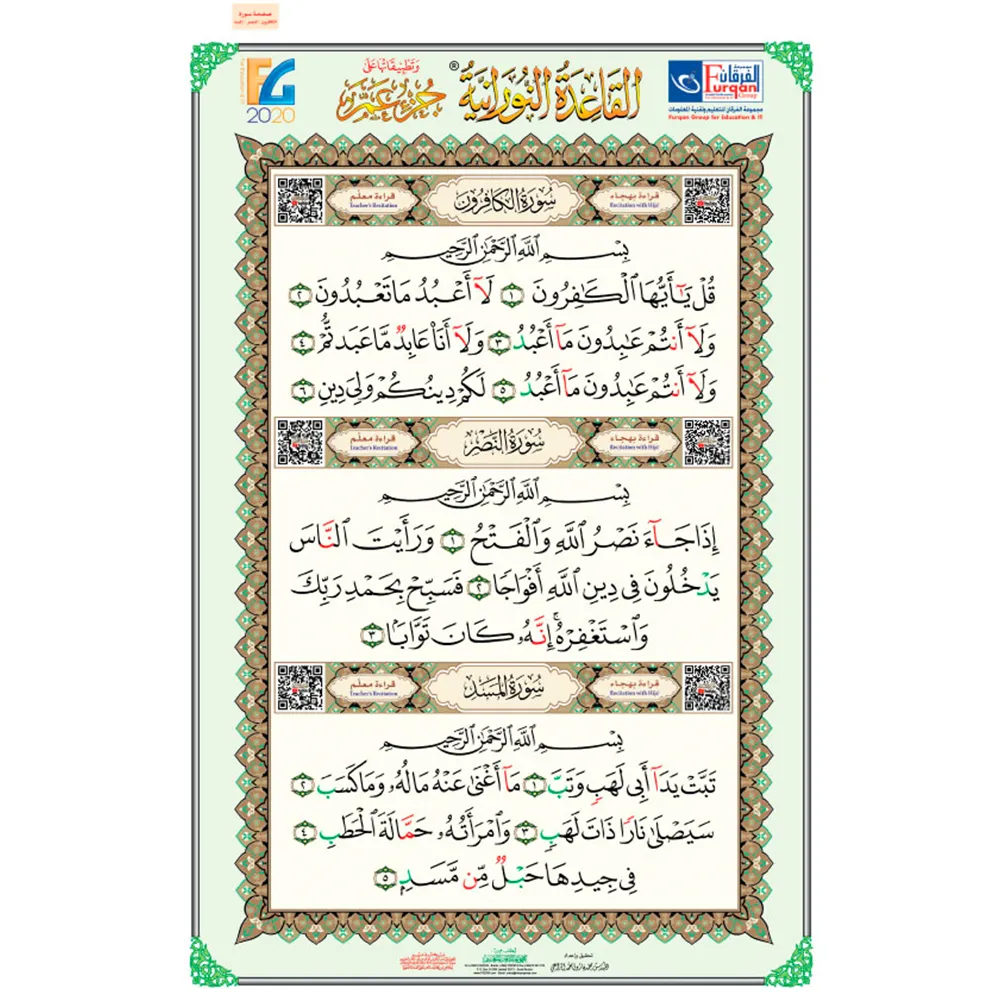 صفحة سورة
الكافرون - النصر - المسد
وَتَطبيقَاتهَا عَلَى
القَاعِدَةُ النُّورَانِيَّةُ ® جُزْءُ عَمَّ
FG
2020
مجموعة
الفرقان
Furqan
Group
مجموعة الفرقان للتعليم وتقنية المعلومات
Furqan Group for Education & IT
قراءة بهجاء سُورَةُ الكَافِرُونَ قراءة معلّم
Recitation with Hija' Teacher's Recitation
بِسْمِ اللَّهِ الرَّحْمَٰنِ الرَّحِيمِ
قُلْ يَـٰٓأَيُّهَا ٱلْكَـٰفِرُونَ ١ لَآ أَعْبُدُ مَا تَعْبُدُونَ ٢
وَلَآ أَنتُمْ عَـٰبِدُونَ مَآ أَعْبُدُ ٣ وَلَآ أَنَا۠ عَابِدٌ مَّا عَبَدتُّمْ ٤
وَلَآ أَنتُمْ عَـٰبِدُونَ مَآ أَعْبُدُ ٥ لَكُمْ دِينُكُمْ وَلِىَ دِينِ ٦
قراءة بهجاء سُورَةُ النَّصْرِ قراءة معلّم
Recitation with Hija' Teacher's Recitation
بِسْمِ اللَّهِ الرَّحْمَٰنِ الرَّحِيمِ
إِذَا جَآءَ نَصْرُ ٱللَّهِ وَٱلْفَتْحُ ١ وَرَأَيْتَ ٱلنَّاسَ
يَدْخُلُونَ فِى دِينِ ٱللَّهِ أَفْوَاجًا ٢ فَسَبِّحْ بِحَمْدِ رَبِّكَ
وَٱسْتَغْفِرْهُ ۚ إِنَّهُۥ كَانَ تَوَّابًۢا ٣
قراءة بهجاء سُورَةُ المَسَدِ قراءة معلّم
Recitation with Hija' Teacher's Recitation
بِسْمِ اللَّهِ الرَّحْمَٰنِ الرَّحِيمِ
تَبَّتْ يَدَآ أَبِى لَهَبٍ وَتَبَّ ١ مَآ أَغْنَىٰ عَنْهُ مَالُهُۥ وَمَا كَسَبَ ٢
سَيَصْلَىٰ نَارًا ذَاتَ لَهَبٍ ٣ وَٱمْرَأَتُهُۥ حَمَّالَةَ ٱلْحَطَبِ ٤
فِى جِيدِهَا حَبْلٌ مِّن مَّسَدٍۭ ٥